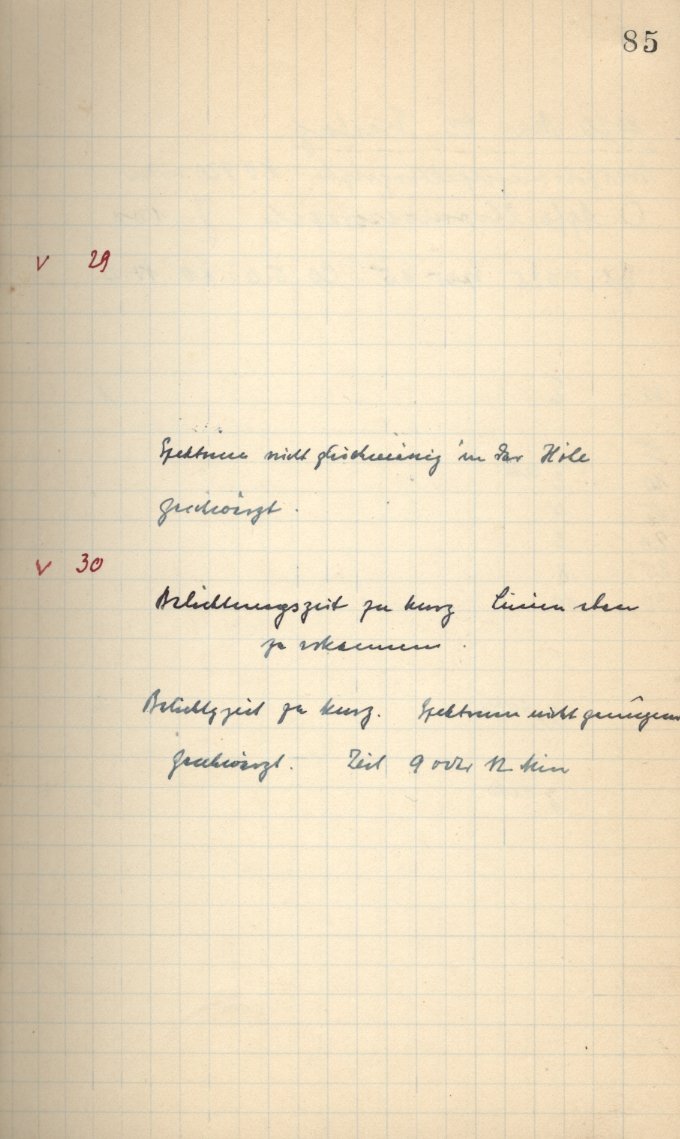 85
V 29
Spektrum nicht gleichmässig in der Höhe
geschwärzt.
V 30
Belichtungszeit zu kurz Linien eben
zu erkennen.
Belichtgzeit zu kurz. Spektrum nicht genügend
geschwärzt. Zeit 9 oder 12 Min